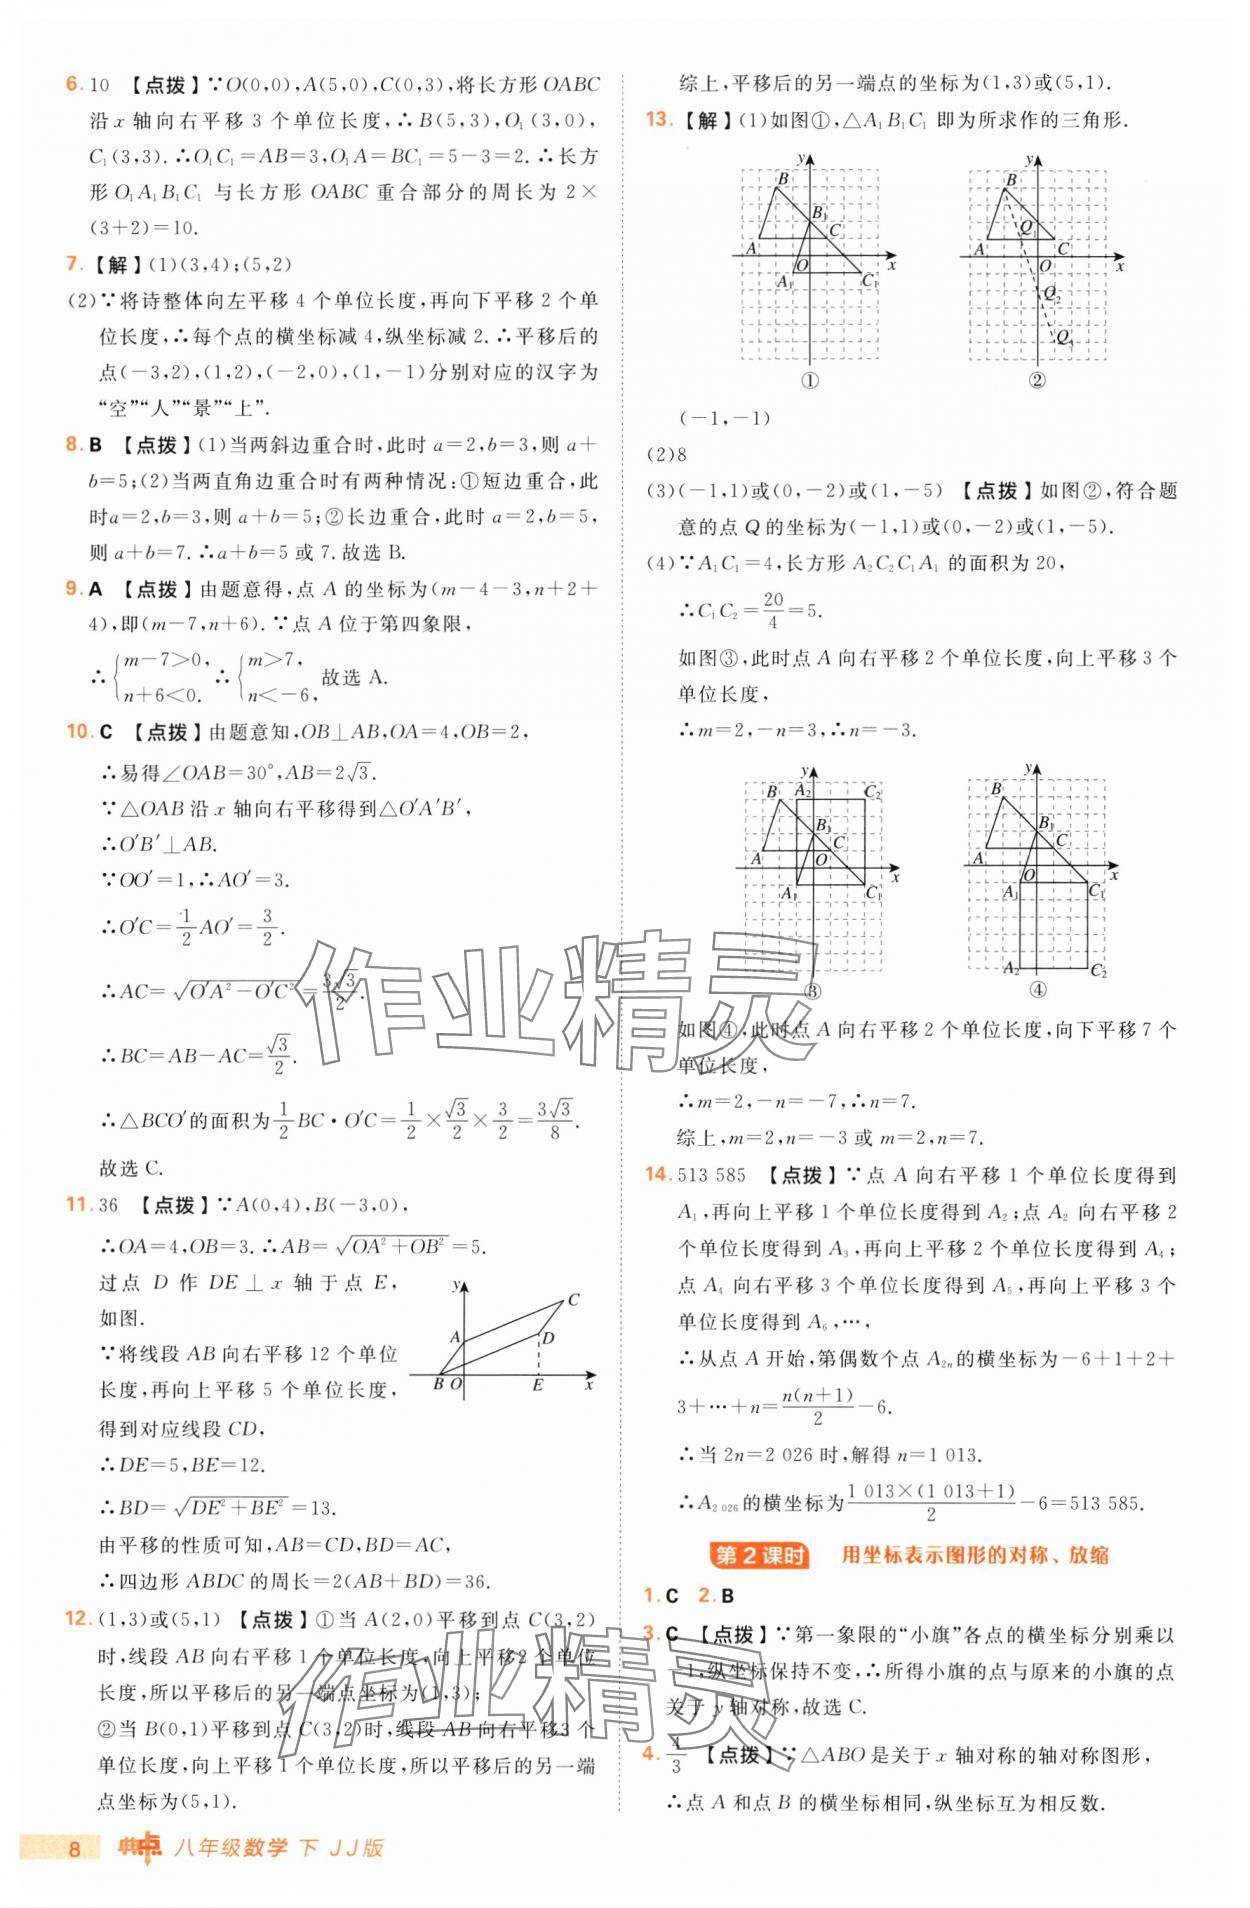 6. 10 【点拨】∵O(0,0),A(5,0),C(0,3),将长方形OABC
沿x轴向右平移3个单位长度,∴B(5,3),O₁(3,0),
C₁(3,3).∴O₁C₁=AB=3,O₁A=BC₁=5-3=2.∴长方
形O₁A₁B₁C₁与长方形OABC重合部分的周长为2×
(3+2)=10.
7.【解】(1)(3,4);(5,2)
(2)∵将诗整体向左平移4个单位长度,再向下平移2个单
位长度,∴每个点的横坐标减4,纵坐标减2.∴平移后的
点(-3,2),(1,2),(-2,0),(1,-1)分别对应的汉字为
“空”“人”“景”“上”.
8. B 【点拨】(1)当两斜边重合时,此时a=2,b=3,则a+
b=5;(2)当两直角边重合时有两种情况:①短边重合,此
时a=2,b=3,则a+b=5;②长边重合,此时a=2,b=5,
则a+b=7.∴a+b=5或7.故选B.
9. A 【点拨】由题意得,点A的坐标为(m-4-3,n+2+
4),即(m-7,n+6).∵点A位于第四象限,
∴{m-7>0, n+6<0. ∴{m>7, n<-6, 故选A.
10. C 【点拨】由题意知,OB⊥AB,OA=4,OB=2,
∴易得∠OAB=30°,AB=2√3.
∵△OAB沿x轴向右平移得到△O′A′B′,
∴O′B′⊥AB.
∵OO′=1,∴AO′=3.
∴O′C=1/2AO′=3/2.
∴AC=√(O′A²-O′C²)=3√3/2.
∴BC=AB-AC=√3/2.
∴△BCO′的面积为1/2BC·O′C=1/2×√3/2×3/2=3√3/8.
故选C.
11. 36 【点拨】∵A(0,4),B(-3,0),
∴OA=4,OB=3.∴AB=√(OA²+OB²)=5.
过点D作DE⊥x轴于点E,
如图.
∵将线段AB向右平移12个单位
长度,再向上平移5个单位长度,
得到对应线段CD,
∴DE=5,BE=12.
∴BD=√(DE²+BE²)=13.
由平移的性质可知,AB=CD,BD=AC,
∴四边形ABDC的周长=2(AB+BD)=36.
y C A D B O E x
12. (1,3)或(5,1) 【点拨】①当A(2,0)平移到点C(3,2)
时,线段AB向右平移1个单位长度,向上平移2个单位
长度,所以平移后的另一端点坐标为(1,3);
②当B(0,1)平移到点C(3,2)时,线段AB向右平移3个
单位长度,向上平移1个单位长度,所以平移后的另一端
点坐标为(5,1).
综上,平移后的另一端点的坐标为(1,3)或(5,1).
13.【解】(1)如图①,△A₁B₁C₁即为所求作的三角形.
y B B₁ A C O x A₁ C₁
①
y B Q₁ A C O x Q₂ Q₃
②
(-1,-1)
(2)8
(3)(-1,1)或(0,-2)或(1,-5) 【点拨】如图②,符合题
意的点Q的坐标为(-1,1)或(0,-2)或(1,-5).
(4)∵A₁C₁=4,长方形A₂C₂C₁A₁的面积为20,
∴C₁C₂=20/4=5.
如图③,此时点A向右平移2个单位长度,向上平移3个
单位长度,
∴m=2,-n=3,∴n=-3.
y B A₂ C₂ B₁ C A O x A₁ C₁
③
y B B₁ C A O x A₁ C₁ A₂ C₂
④
如图④,此时点A向右平移2个单位长度,向下平移7个
单位长度,
∴m=2,-n=-7,∴n=7.
综上,m=2,n=-3或m=2,n=7.
14. 513 585 【点拨】∵点A向右平移1个单位长度得到
A₁,再向上平移1个单位长度得到A₂;点A₂向右平移2
个单位长度得到A₃,再向上平移2个单位长度得到A₄;
点A₄向右平移3个单位长度得到A₅,再向上平移3个
单位长度得到A₆,…,
∴从点A开始,第偶数个点A₂ₙ的横坐标为-6+1+2+
3+…+n=n(n+1)/2-6.
∴当2n=2 026时,解得n=1 013.
∴A₂ ₀₂₆的横坐标为1 013×(1 013+1)/2-6=513 585.
第2课时 用坐标表示图形的对称、放缩
1. C 2. B
3. C 【点拨】∵第一象限的“小旗”各点的横坐标分别乘以
-1,纵坐标保持不变,∴所得小旗的点与原来的小旗的点
关于y轴对称,故选C.
4. 4/3 【点拨】∵△ABO是关于x轴对称的轴对称图形,
∴点A和点B的横坐标相同,纵坐标互为相反数.
作业精灵
作业精灵
8 典点 八年级数学 下 JJ版